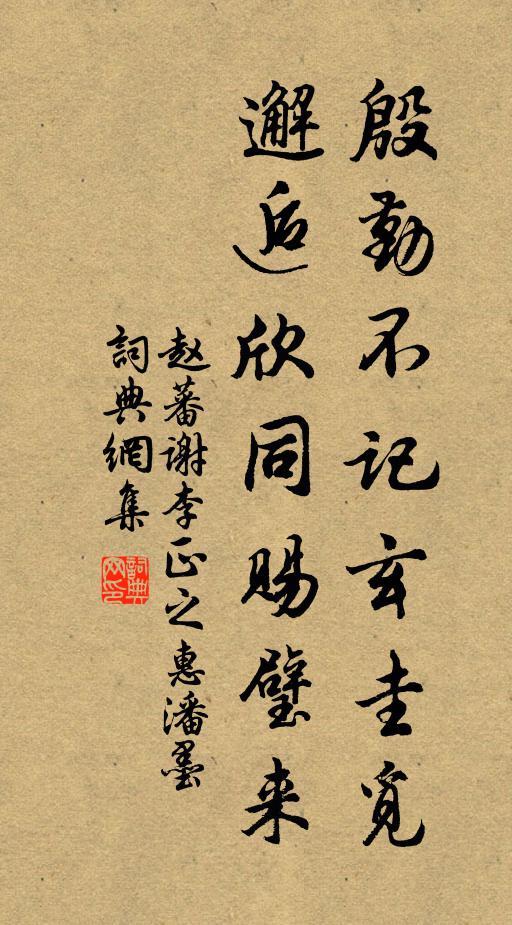 殷勤不記玄圭覓
邂逅欣同賜璧来
赵蕃谢李正之惠潘墨
詞典網集
詞典網印